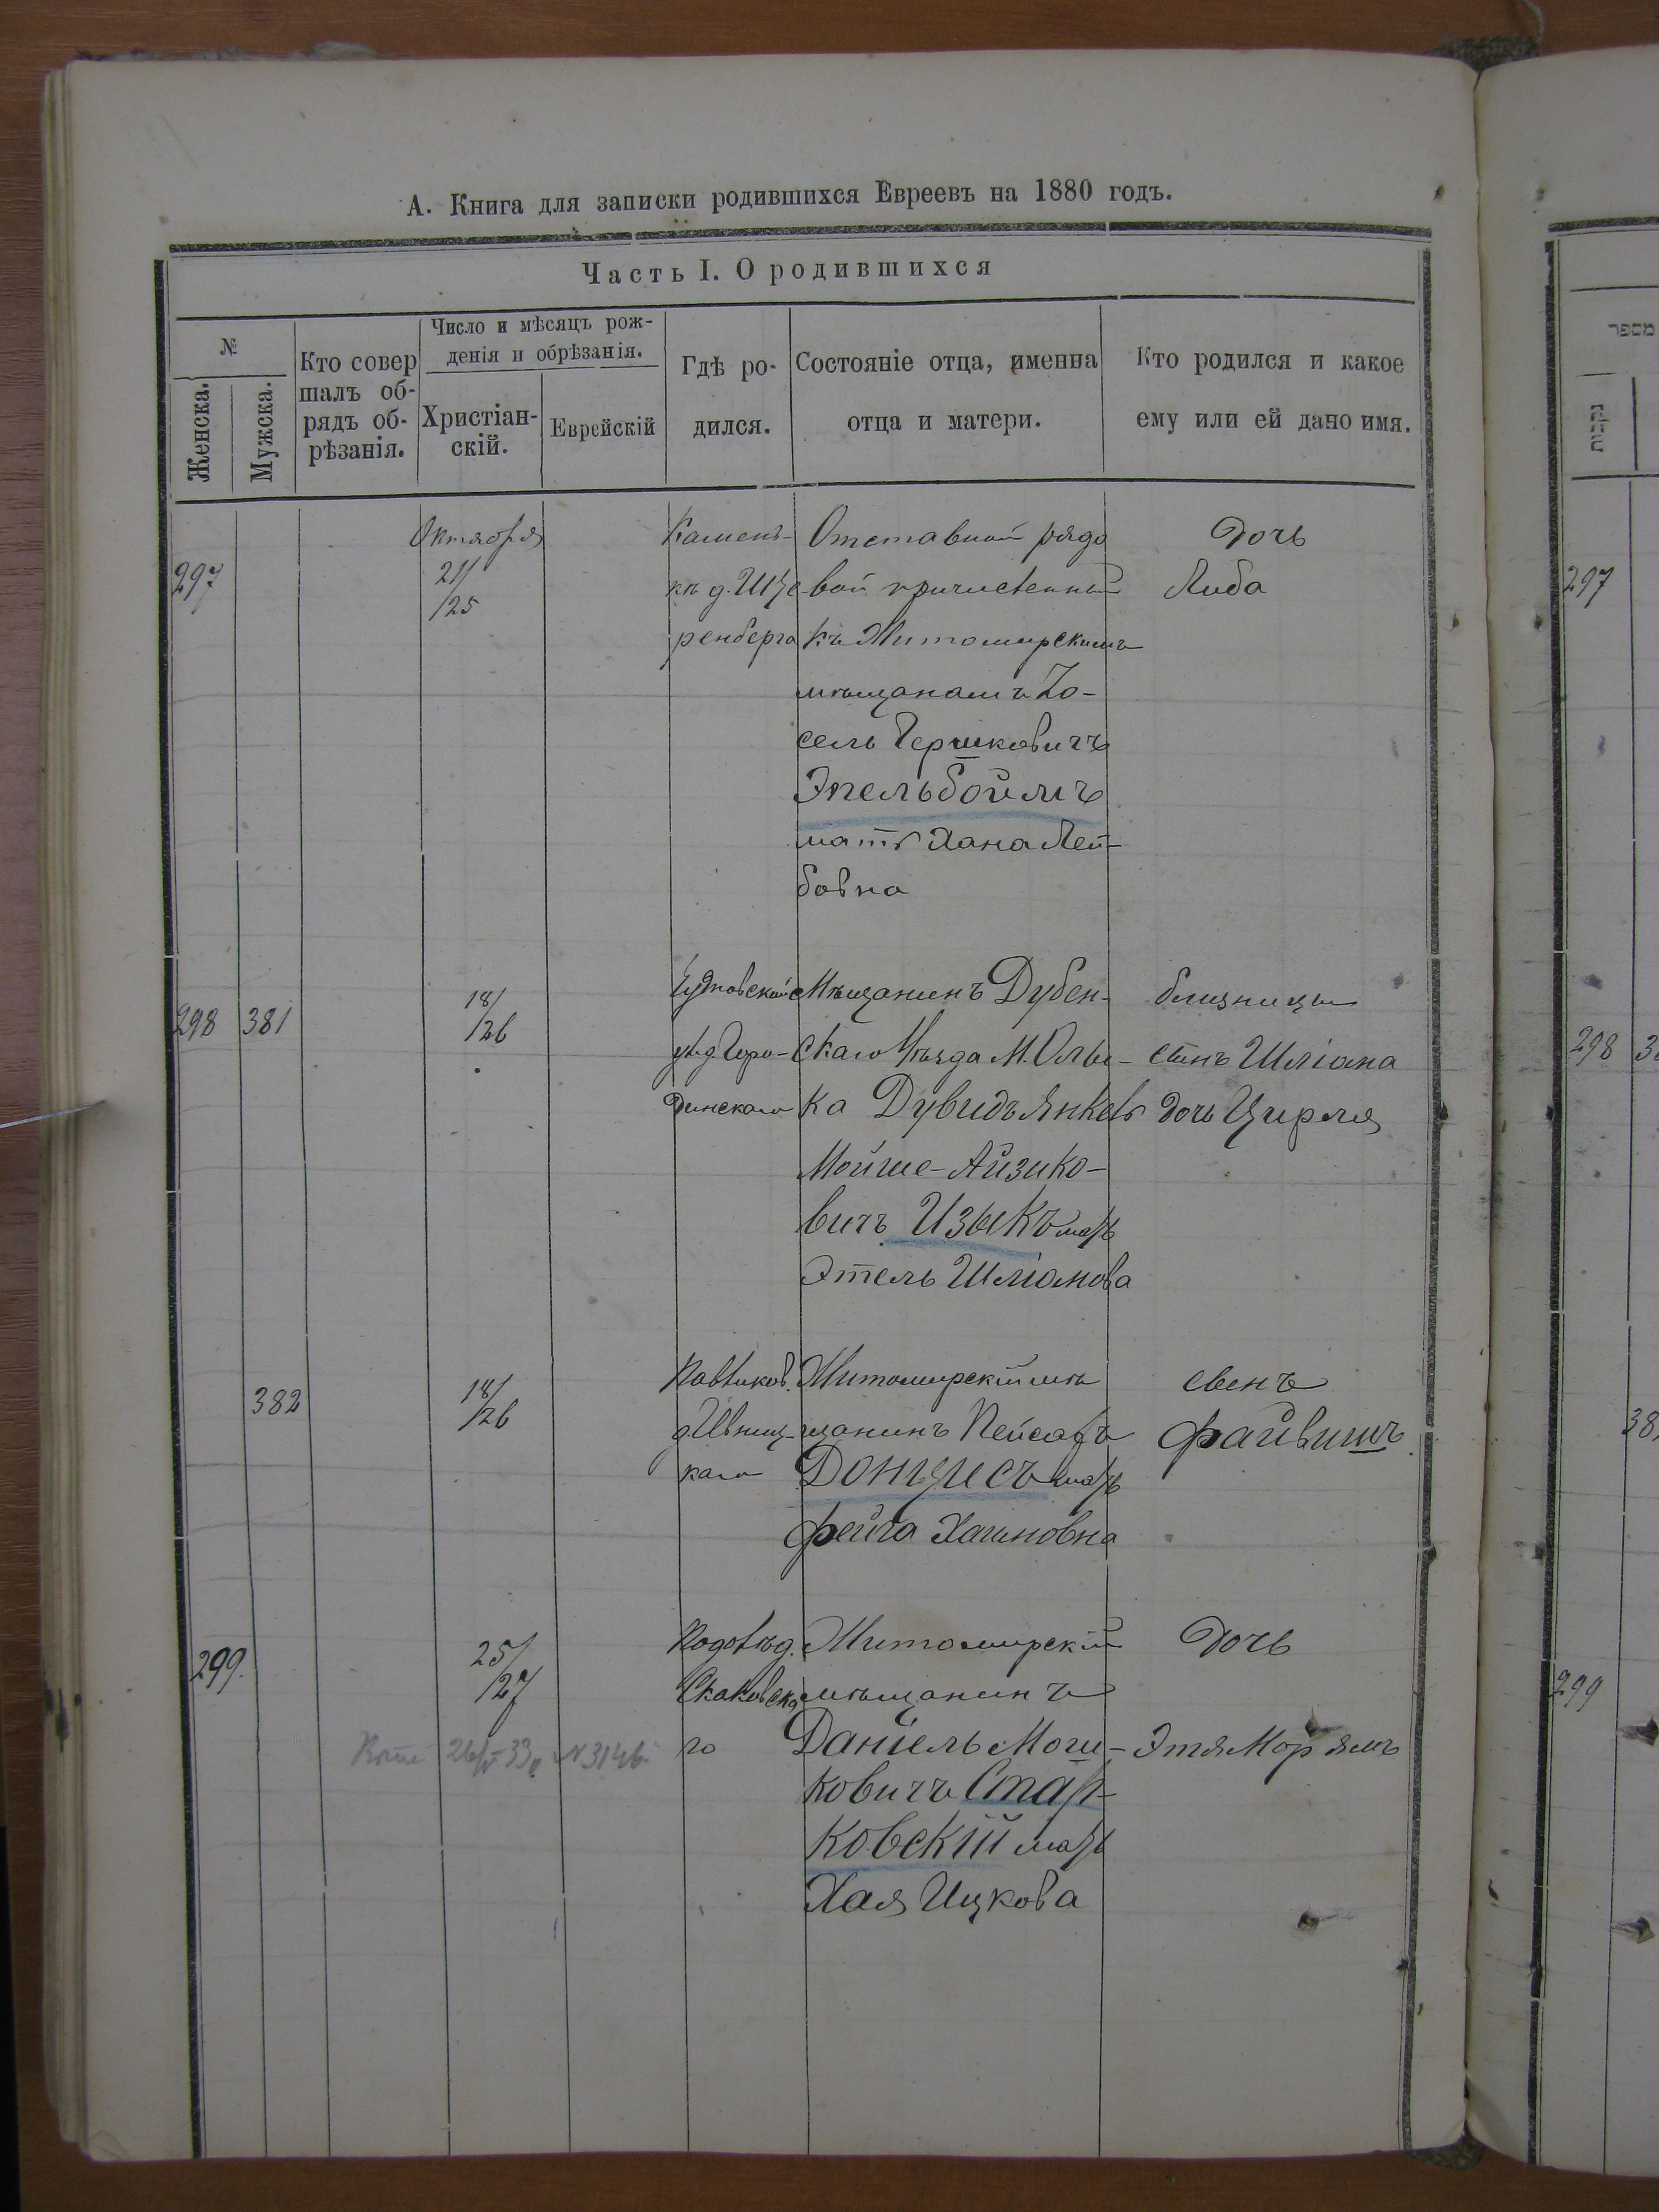 А. Книга для записки родившихся Евреевъ на 1880 годъ.
Часть I. О родившихся
№
Женска.
Мужска.
Кто совер
шалъ об-
рядъ об-
рѣзанія.
Число и мѣсяцъ рож-
денія и обрѣзанія.
Христіан-
скій.
Еврейскій
Гдѣ ро-
дился.
Состояніе отца, именна
отца и матери.
Кто родился и какое
ему или ей дано имя.
297
Октября
21/
/25
ренберга
Отставной рядо
вой причисленный
къ Житомирскимъ
мѣщанамъ Іо-
сель Гершковичъ
Эпельбоймъ
мать Хана Лей-
бовна
Дочь
Либа
298 381
18/
/26
Чудновской
динскаго
Мѣщанинъ Дубен-
скаго Уѣзда М. Олы-
ка Дувидъ Янкель
Мойше-Айзико-
вичъ Изыкъ мать
Этель Шліомова
близнецы
сынъ Шліома
дочь Цирля
382
18/
/26
каго
Житомирскій мѣ
щанинъ Пейсахъ
Донцисъ мать
Фейга Хаимовна
сынъ
Файвишъ
299.
25/
/27
Скаковска
го
Житомирскій
мѣщанинъ
Даніель Мош-
ковичъ Став-
ковскій мать
Хая Ицкова
Дочь
Этя Моръямъ
N 3146
מספר
נקבות
297
298
38
299